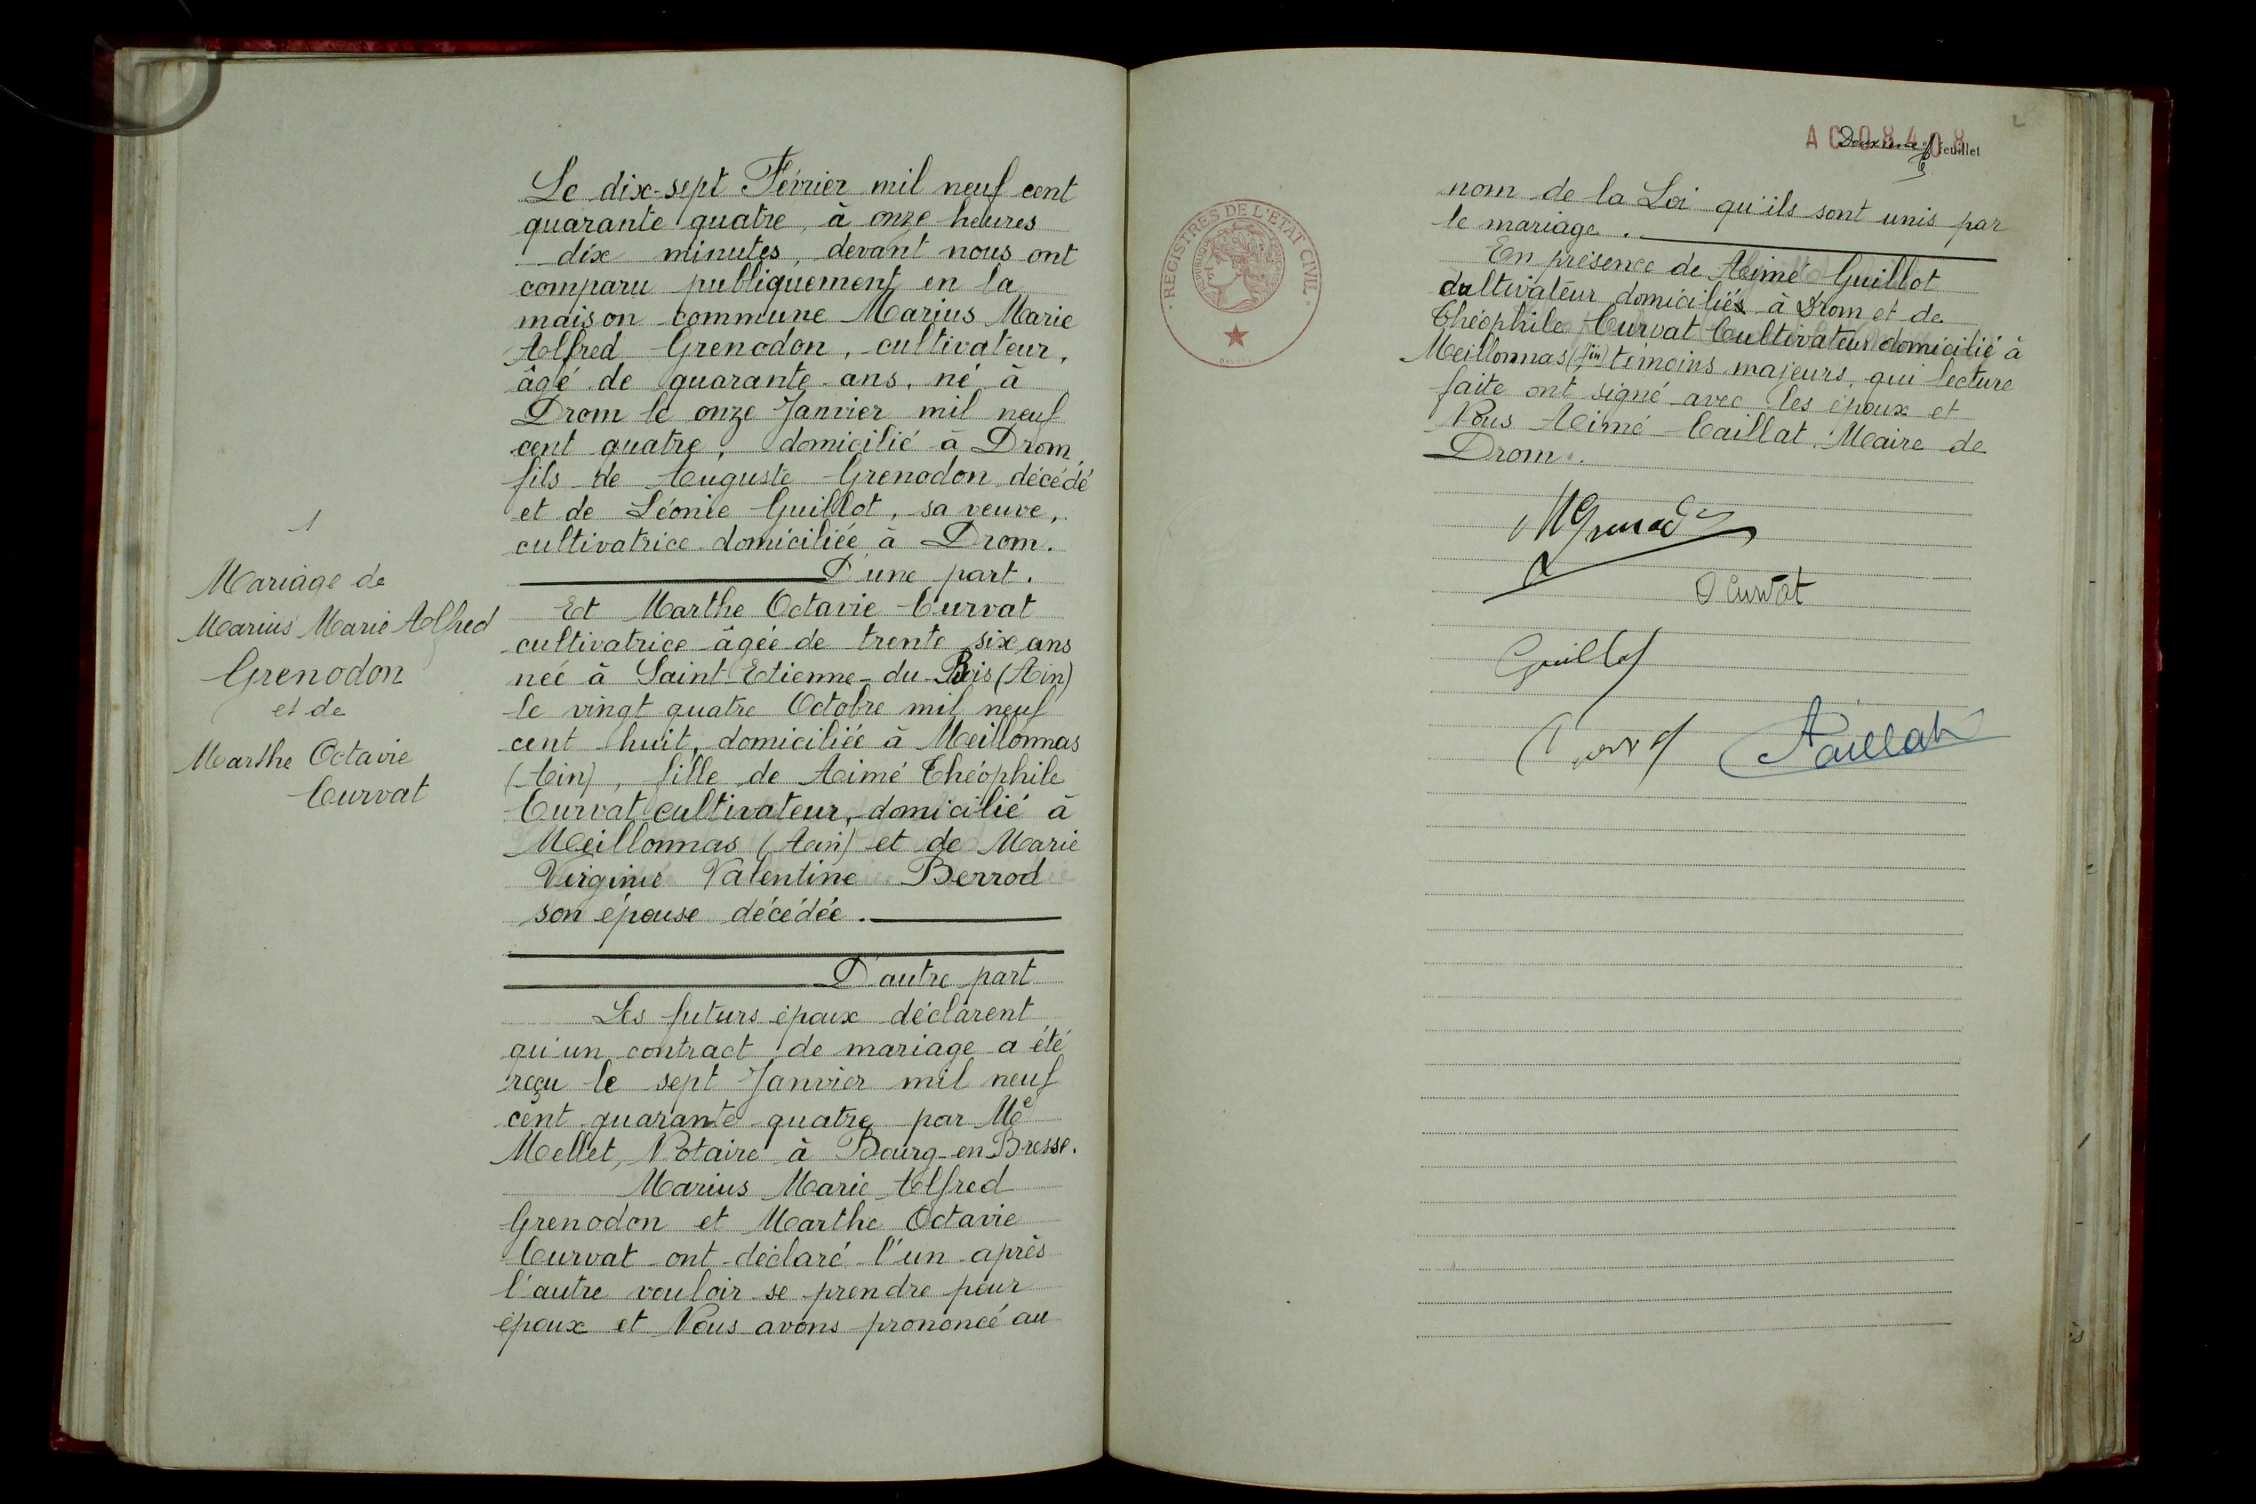 1
Mariage de
Marius Marie Alfred
Grenodon
et de
Marthe Octavie
Curvat
Le dix-sept Février mil neuf cent
quarante quatre, à onze heures
dix minutes, devant nous ont
comparu publiquement en la
maison commune Marius Marie
Alfred Grenodon, cultivateur,
âgé de quarante ans, né à
Drom le onze Janvier mil neuf
cent quatre, domicilié à Drom,
fils de Auguste Grenodon décédé
et de Léonie Guillot, sa veuve,
cultivatrice domiciliée à Drom.
D'une part.
Et Marthe Octavie Curvat
cultivatrice âgée de trente six ans
née à Saint-Etienne-du-Bois (Ain)
le vingt quatre Octobre mil neuf
cent huit, domiciliée à Meillonnas
(Ain), fille de Aimé Théophile
Curvat cultivateur, domicilié à
Meillonnas (Ain) et de Marie
Virginie Valentine Berrod
son épouse décédée.
D'autre part
Les futurs époux déclarent
qu'un contract de mariage a été
reçu le sept Janvier mil neuf
cent quarante quatre par Me
Mellet, Notaire à Bourg-en-Bresse.
Marius Marie Alfred
Grenodon et Marthe Octavie
Curvat ont déclaré l'un après
l'autre vouloir se prendre pour
époux et Nous avons prononcé au
AC 08408
Deuxième feuillet
2
REGISTRES DE L'ETAT CIVIL
nom de la Loi qu'ils sont unis par
le mariage.
En présence de Aimé Guillot
cultivateur domicilié à Drom et de
Théophile Curvat Cultivateur domicilié à
Meillonnas (Ain) témoins majeurs, qui lecture
faite ont signé avec les époux et
Nous Aimé Caillat, Maire de
Drom.
MGrenod
O Curvat
Guillot
Curvat
ACaillat